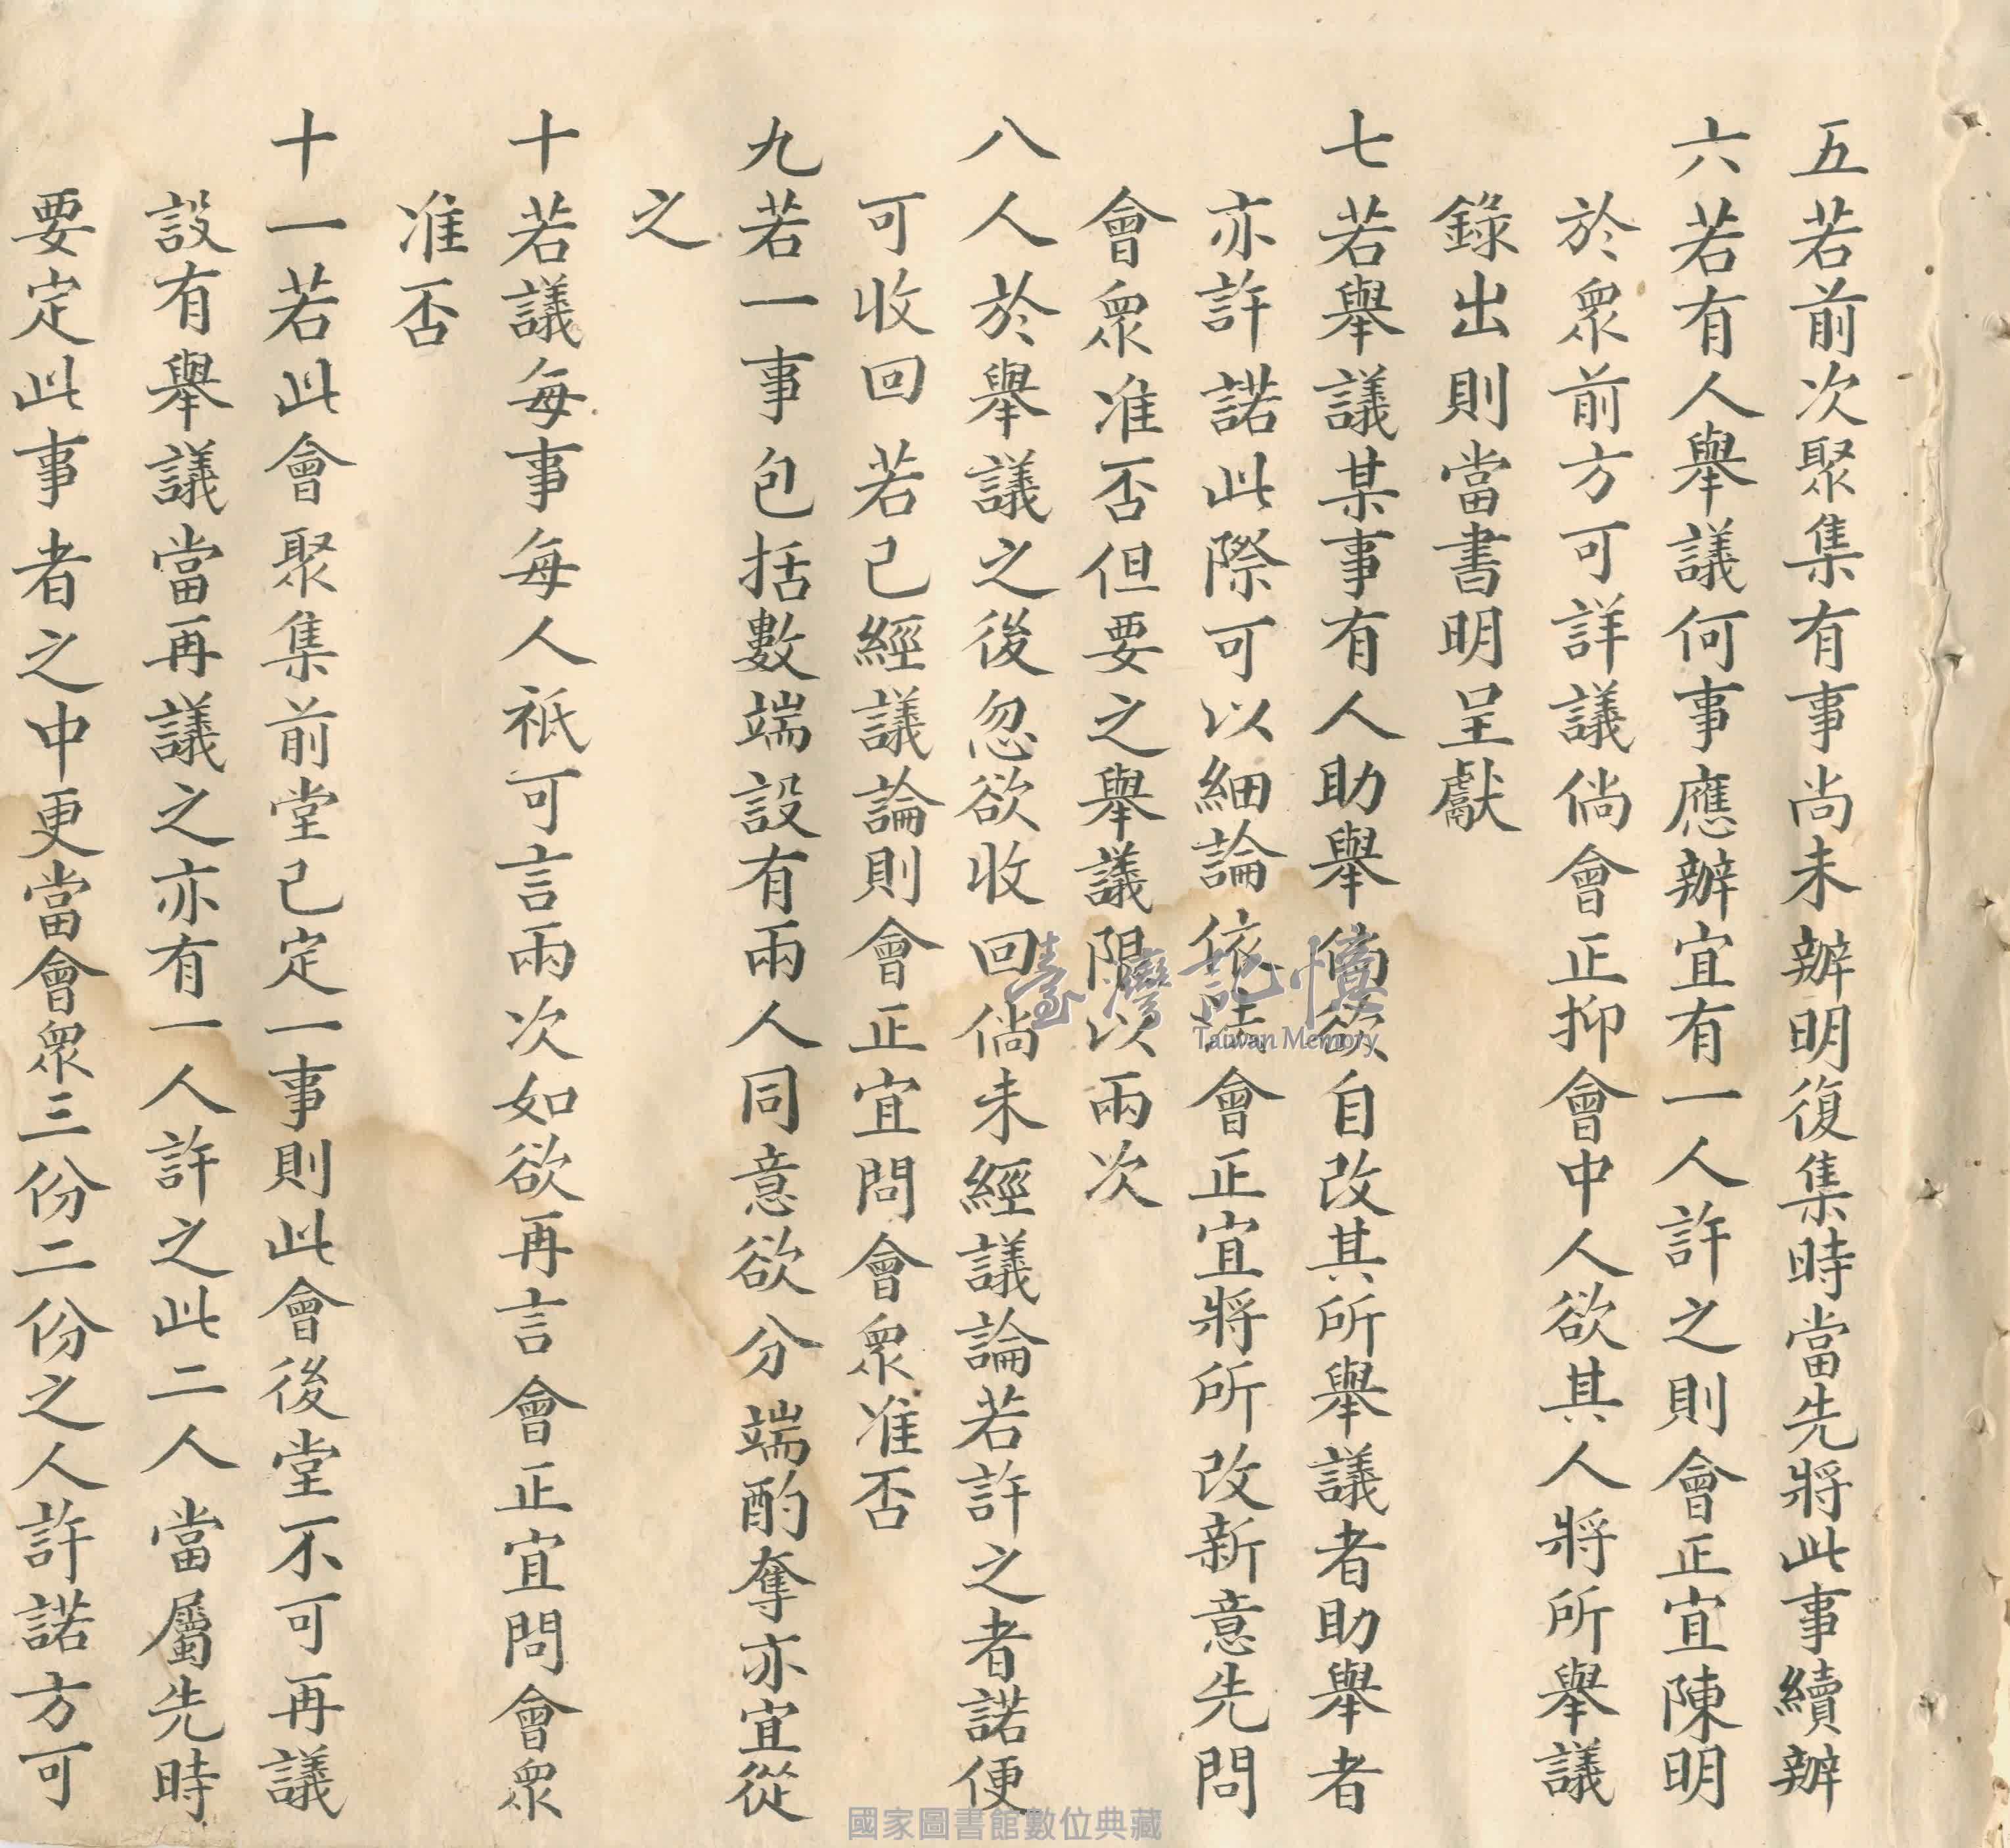 五若前次聚集有事尚未辦明復集時當先將此事續辦
六若有人舉議何事應辦宜有一人許之則會正宜陳明
於眾前方可詳議倘會正抑會中人欲其人將所舉議
錄出則當書明呈獻
七若舉議某事有人助舉倘欲自改其所舉議者助舉者
亦許諾此際可以細論依法會正宜將所改新意先問
會眾准否但要之舉議限以兩次
八人於舉議之後忽欲收回倘未經議論若許之者諾便
可收回若已經議論則會正宜問會眾准否
九若一事包括數端設有兩人同意欲分端酌奪亦宜從
之
十若議每事每人祇可言兩次如欲再言會正宜問會眾
准否
十一若此會聚集前堂己定一事則此會後堂不可再議
設有舉議當再議之亦有一人許之此二人當屬先時
要定此事者之中更當會眾三份二份之人許諾方可
臺灣記憶
Taiwan Memory
國家圖書館數位典藏